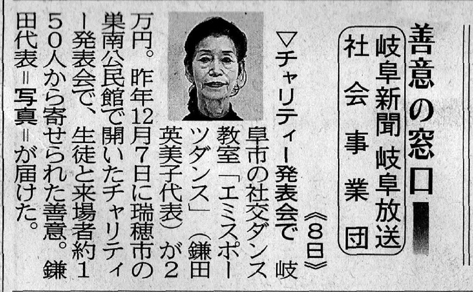 善意の窓口
岐阜新聞 岐阜放送
社会事業団
《8日》
▽チャリティー発表会で 岐
阜市の社交ダンス
教室「エミスポー
ツダンス」(鎌田
英美子代表)が2
万円。昨年12月7日に瑞穂市の
巣南公民館で開いたチャリティ
ー発表会で、生徒と来場者約1
50人から寄せられた善意。鎌
田代表=写真=が届けた。